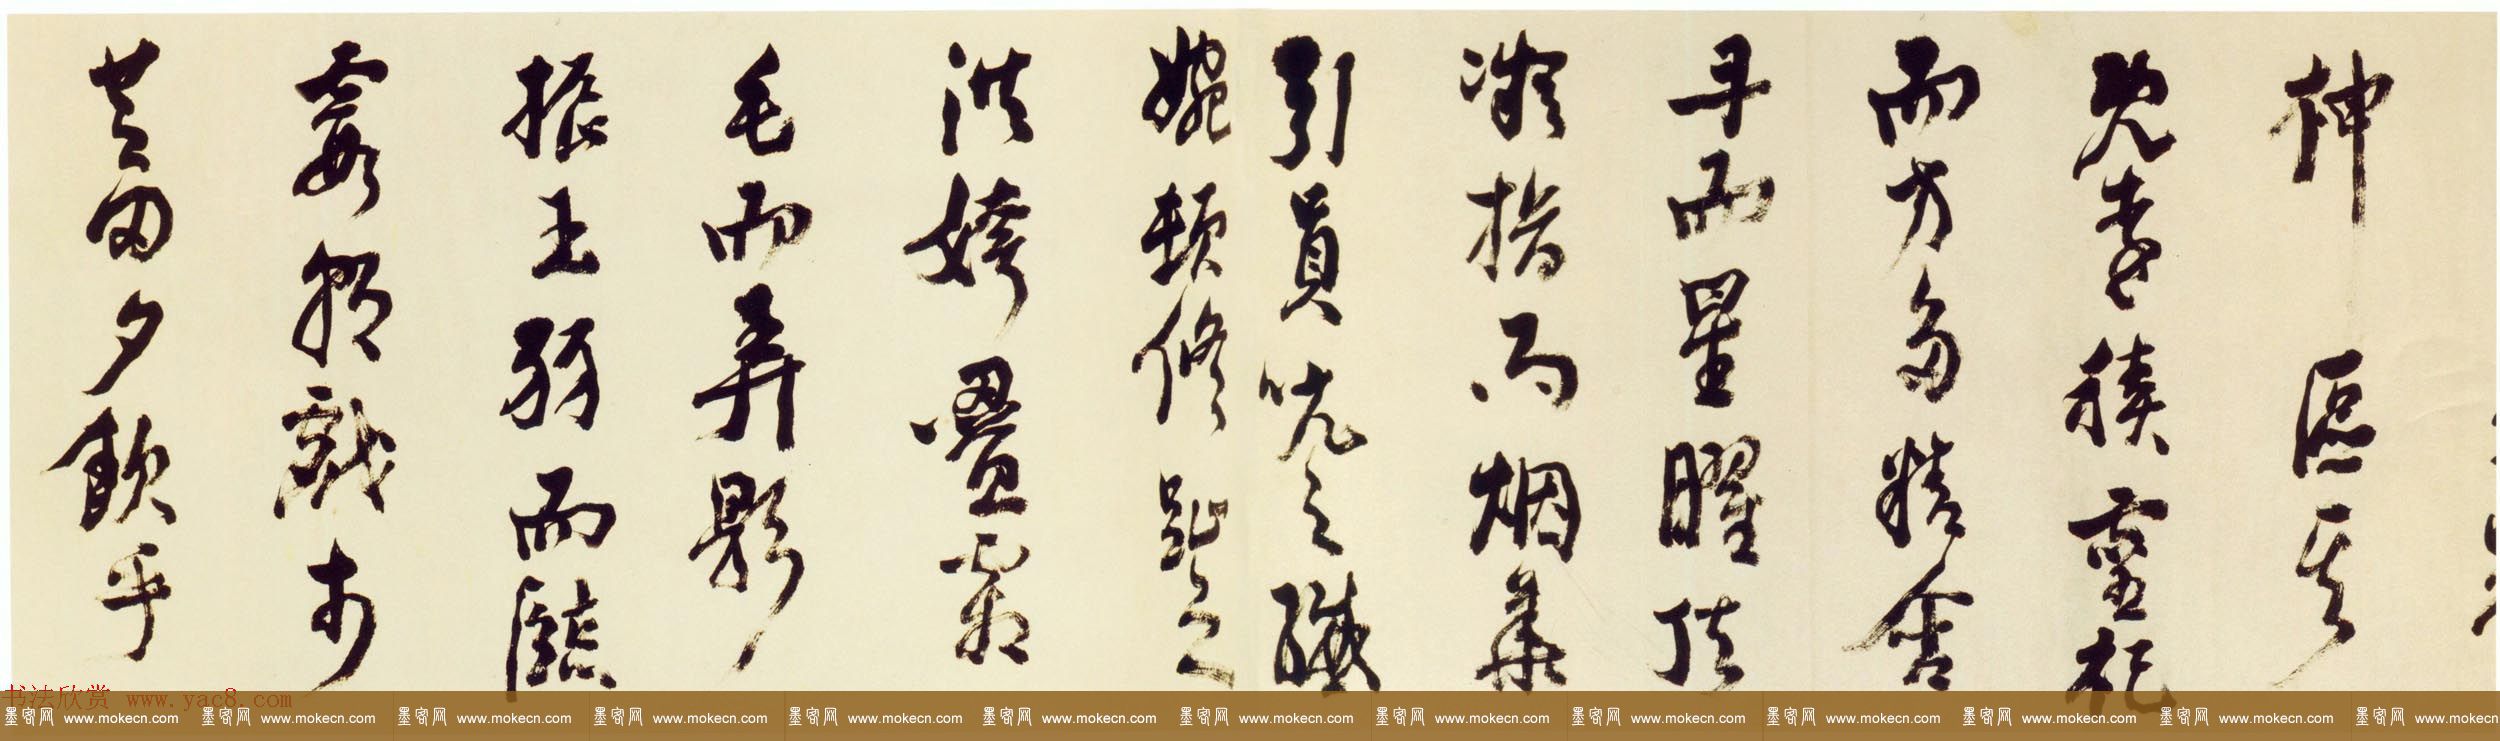 神區其
既遠積靈祀
而方多精含
丹而星曜頂
凝指而烟華
引員吭之纖
婉頓修趾之
洪姱疊霜
毛而弄影
振玉羽而臨
霞朝戲於
芝田夕飲乎
书法欣赏 www.yac8.com
墨客网 www.mokecn.com 墨客网 www.mokecn.com 墨客网 www.mokecn.com 墨客网 www.mokecn.com 墨客网 www.mokecn.com 墨客网 www.mokecn.com 墨客网 www.mokecn.com 墨客网 www.mokecn.com 墨客网 www.mokecn.com 墨客网 www.mokecn.com 墨客网 www.mokecn.com 墨客网 www.mokecn.com 墨客网 www.mokecn